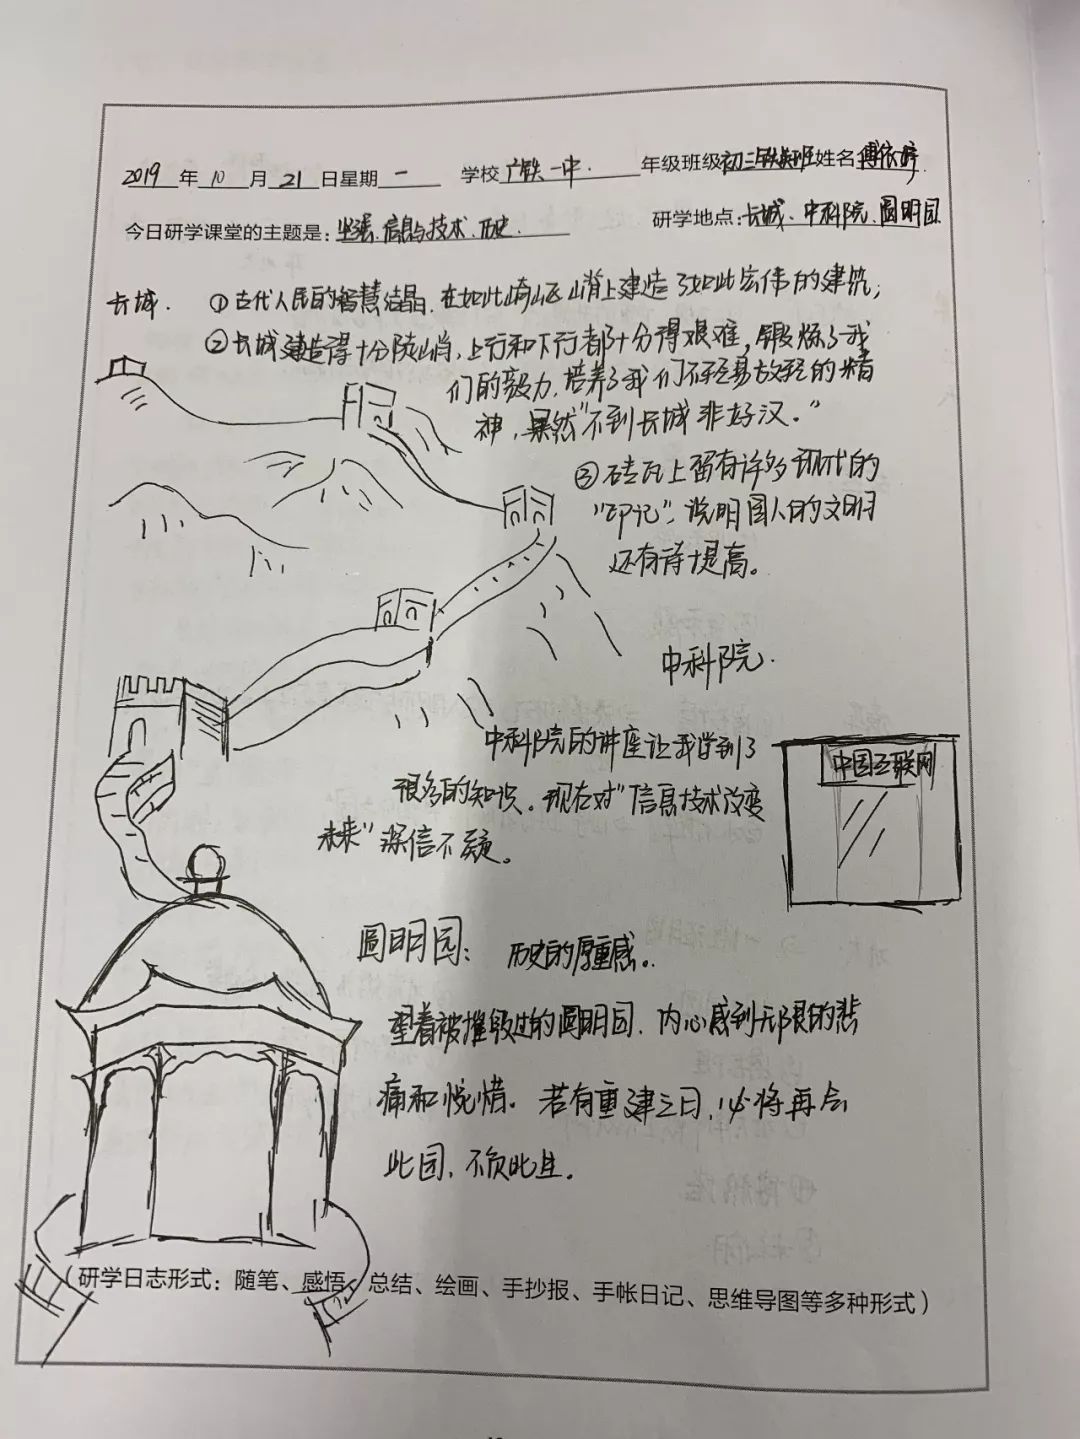 2019年10月21日星期一 学校广铁一中. 年级班级初三铁英班姓名傅依婷
今日研学课堂的主题是:坚强、信息与技术、历史. 研学地点:长城、中科院、圆明园
长城. ①古代人民的智慧结晶,在如此崎岖山峭上建造了如此宏伟的建筑;
②长城建造得十分陡峭,上行和下行都十分得艰难,锻炼了我
们的毅力,培养了我们不轻易放轻的精
神,果然“不到长城非好汉.”
③砖瓦上留有许多现代的
“印记”,说明国人的文明
还有待提高。
中科院.
中科院的讲座让我学到了
很多的知识.现在对“信息技术改变
未来”深信不疑。
中国互联网
圆明园: 历史的厚重感。
望着被摧毁过的圆明园,内心感到无限的悲
痛和惋惜。若有重建之日,必将再会
此园,不负此生.
(研学日志形式:随笔、感悟、总结、绘画、手抄报、手帐日记、思维导图等多种形式)